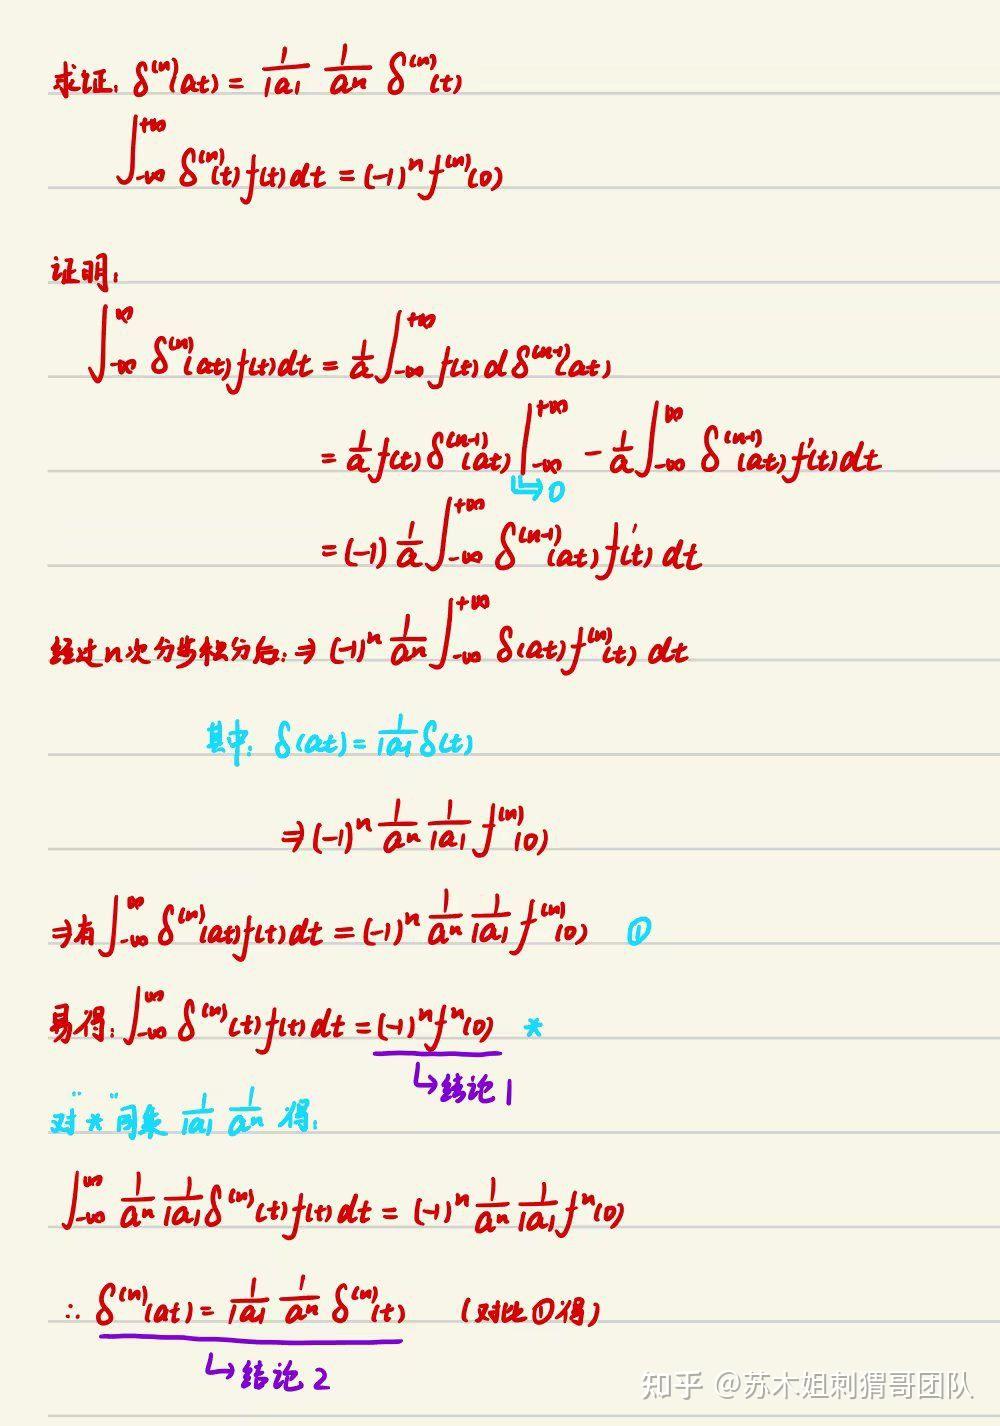 求证: δ⁽ⁿ⁾(at) = 1/|a| 1/aⁿ δ⁽ⁿ⁾(t)
∫_{-∞}^{+∞} δ⁽ⁿ⁾(t) f(t) dt = (-1)ⁿ f⁽ⁿ⁾(0)
证明:
∫_{-∞}^{∞} δ⁽ⁿ⁾(at) f(t) dt = 1/a ∫_{-∞}^{+∞} f(t) d δ⁽ⁿ⁻¹⁾(at)
= 1/a f(t) δ⁽ⁿ⁻¹⁾(at) |_{-∞}^{+∞} - 1/a ∫_{-∞}^{∞} δ⁽ⁿ⁻¹⁾(at) f'(t) dt
↳ 0
= (-1) 1/a ∫_{-∞}^{+∞} δ⁽ⁿ⁻¹⁾(at) f'(t) dt
经过n次分步积分后: ⇒ (-1)ⁿ 1/aⁿ ∫_{-∞}^{+∞} δ(at) f⁽ⁿ⁾(t) dt
其中: δ(at) = 1/|a| δ(t)
⇒ (-1)ⁿ 1/aⁿ 1/|a| f⁽ⁿ⁾(0)
⇒有 ∫_{-∞}^{∞} δ⁽ⁿ⁾(at) f(t) dt = (-1)ⁿ 1/aⁿ 1/|a| f⁽ⁿ⁾(0) ①
易得: ∫_{-∞}^{∞} δ⁽ⁿ⁾(t) f(t) dt = (-1)ⁿ fⁿ(0) *
↳结论1
对"*"同乘 1/|a| 1/aⁿ 得:
∫_{-∞}^{∞} 1/aⁿ 1/|a| δ⁽ⁿ⁾(t) f(t) dt = (-1)ⁿ 1/aⁿ 1/|a| fⁿ(0)
∴ δ⁽ⁿ⁾(at) = 1/|a| 1/aⁿ δ⁽ⁿ⁾(t) (对比①得)
↳结论2
知乎 @苏木姐刺猬哥团队